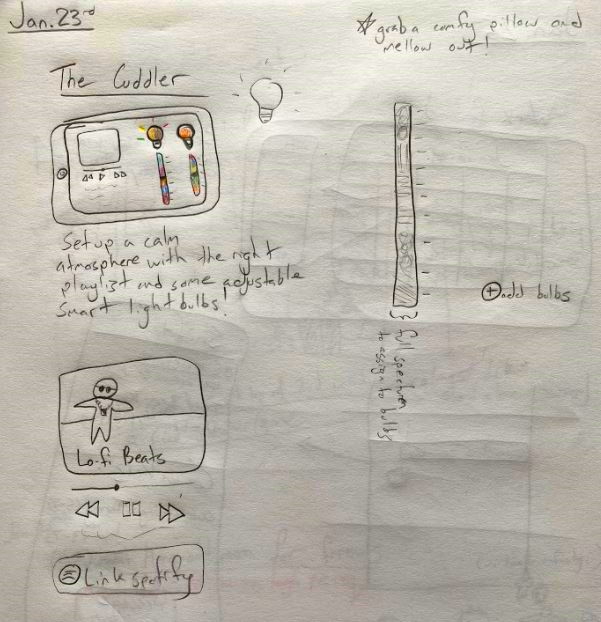 Jan. 23rd
grab a comfy pillow and
mellow out!
The Cuddler
Set up a calm
atmosphere with the right
playlist and some adjustable
smart lightbulbs!
add bulbs
full spectrum
to assign to bulbs
Lo-fi Beats
Link spotify